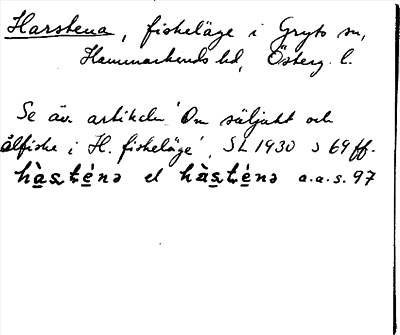 Harstena, fiskeläge i Gryts sn,
Hammarkinds hd, Österg. l.
Se äv. artikeln 'Om säljakt och
ålfiske i H. fiskeläge', SL 1930 s 69 ff.
hàsténə el hàsténə a.a.s. 97